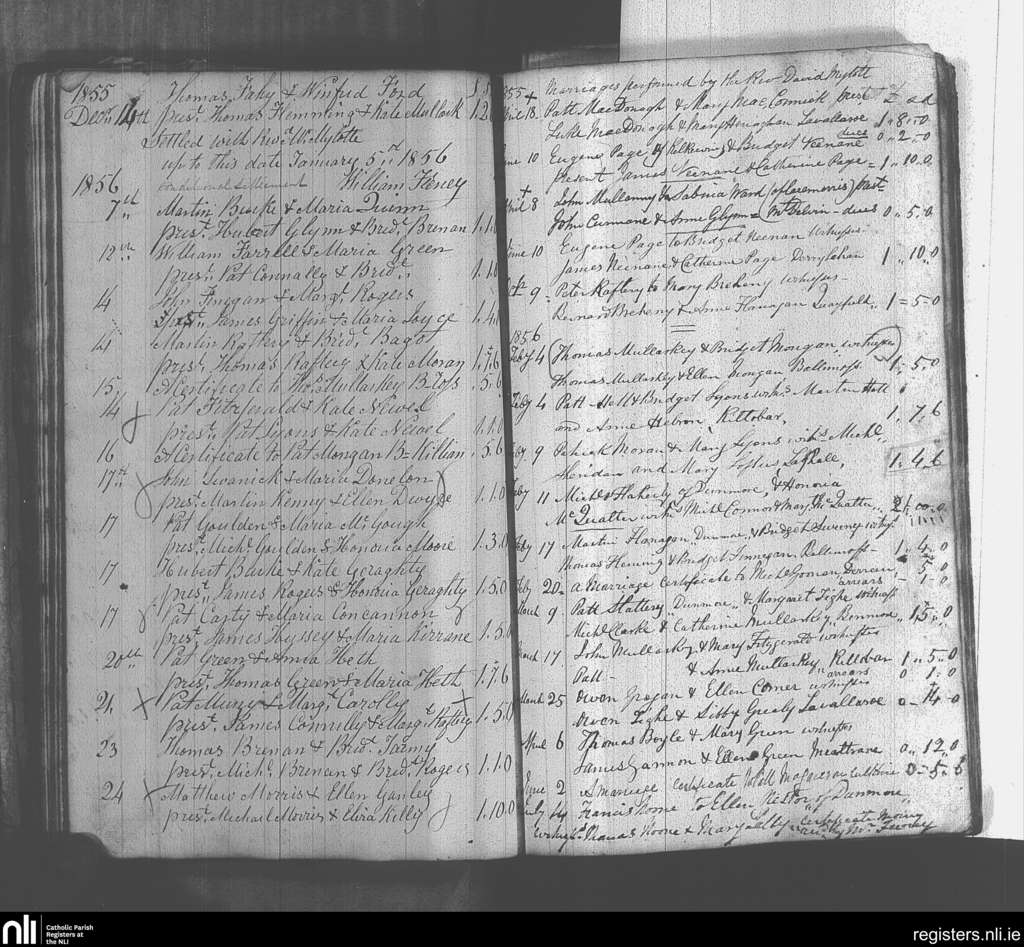 1855
Thomas Fahy & Winfrid Ford
Decr 14th prest. Thomas Hemming & Kate Mullark 1.2
Settled with Revd W. Mylotte
up to this date January 5th 1856
1856 Conditional Settlement William Feney
7th Martin Burke & Maria Quinn
prest. Hubert Glynn & Bridt. Brenan 1.1.
12th William Farrell & Maria Green
prest. Pat Connally & Bridt. 1.10
14 John Finegan & Margt. Rogers
Prest. James Griffin & Maria Joyce 1.4.
14 Martin Raftery & Bridt. Bagot
prest. Thomas Raftery & Kate Moran 1.7.6
15 A Certificate to Thos. Mullarkey B. 5.6
14 Pat Fitzgerald & Kate Newel
prest. Pat Lyons & Kate Newel 1.1.0
16 A Certificate to Pat Mongan B. Killian 5.6
17th John Swanick & Maria Donelon
prest. Martin Kenny & Ellen Dwyre 1.1.0
17 Pat Goulden & Maria McGough
prest. Michl. Goulden & Honoria Moore 1.3.0
17 Hubert Burke & Kate Geraghty
prest. James Rogers & Honoria Geraghty 1.5.0
17 Pat Carty & Maria Concannon
prest. James Hussey & Maria Kirrane 1.5.0
20th Pat Green & Anna Heth
prest. Thomas Green & Maria Heth 1.7.6
21 Pat & Margt. Carolly
prest. James Connolly & Margt. 1.5.0
23 Thomas Brenan & Bridt.
prest. Michl. Brenan & Bridt. Rogers 1.1.0
24 Matthew Morris & Ellen Ganley
prest. Michael Morris & Eliza Kelly 1.10.0
Marriages performed by the Revd David Mylott
18 Patt MacDonagh & Mary MacCormick prest
Luke MacDonagh & Mary Heraghan Lavallaroe 1.8.0
dues 0.2.0
June 10 Eugene Page of Kilkerwing & Budget Keenane
present James Keenane & Catherine Page 1.10.0
April 8 John Mullanny to Sabina Ward (of Claremorris) prest
John Cunnane & Anne Glynn = dues 0.5.0
June 10 Eugene Page to Bridget Keenan Witnesses
James Keenane & Catherine Page Derrylahan 1.10.0
9 Peter Raftery to Mary Breheny witnesses
Bernard Breheny & Anne Flanigan 1=5-0
1856
Feby 4 Thomas Mullarkey & Bridget Mongan, witnesses
Thomas Mullarkey & Ellen Mongan Ballimoss 1.5.0
Feby 4 Patt Hall & Bridget Lyons witns Martin Hall
and Anne Hebron, Kiltobar, 1.7.6
Feby 9 Patrick Moran & Mary Lyons wits Michl.
Sheridan and Mary 1.4.6
Feby 11 Michl. Flaherty of Dunmore, & Honoria
McQuatter wits Michl Connor & Mary McQuatter 2.00.0
Feby 17 Martin Flanagan Dunmore, & Bridget Sweeny
Thomas Fleming & Bridget Finnegan 1.4.0
Feby 20 a Marriage Certificate to Michl Noonan 5.0
arrears 1.0
March 9 Patt Slattery Dunmore & Margaret Tighe witness
Michl Clarke & Catherine Mullarkey, 1.5.0
March 17 John Mullarky & Mary Fitzgerald witnesses
Patt & Anne Mullarkey Killobar 1.5.0
arrears 0.1.0
March 25 Owen Grogan & Ellen Comer witnesses
Owen Tighe & Sibby Grealy Lavallaroe 0-14-0
April 6 Thomas Boyle & Mary Green witnesses
James Gannon & Ellen Green Meattrane 0.12.0
June 2 a marriage certificate to 0-5-6
July 14 Francis Noone to Ellen Nestor of Dunmore
witness Thomas Noone & Mary certificate money
nli
Catholic Parish
Registers at
the NLI
registers.nli.ie